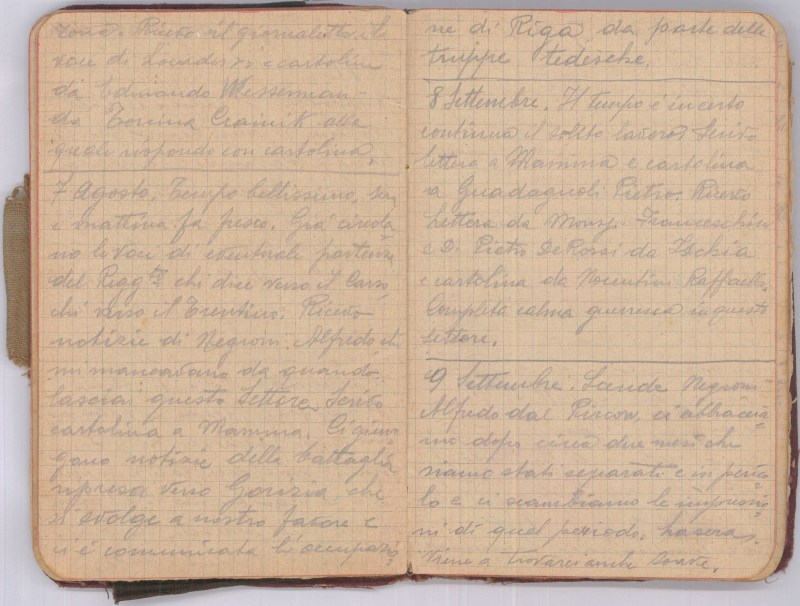 zona. Ricevo il giornaletto "la
voce di Lourdes" e cartolina
da Edmondo Messerman
da Zorina Crainik alla
quale rispondo con cartolina.
7 Agosto. Tempo bellissimo, sera
e mattina fà fresco. Già circola=
no le voci di eventuale partenza
del Regg.to chi dice verso il Carso
chi verso il Trentino. Ricevo
notizie di Negroni Alfredo che
mi mancavano da quando
lasciai questo Settore. Scrivo
cartolina a Mamma. Ci giun=
gono notizie della battaglia
ripresa verso Gorizia che
si svolge a nostro favore e
ci è comunicata l'occupazio=
ne di Riga da parte delle
truppe tedesche.
8 Settembre. Il tempo è incerto
continua il solito lavoro. Scrivo
lettera a Mamma e cartolina
a Guadagnoli Pietro. Ricevo
lettera da Mons. Franceschini
e Di Pietro De Rossi da Ischia
e cartolina da Nocentini Raffaello.
Completa calma guerresca in questo
settore.
9 Settembre. Scende Negroni
Alfredo dal ci abbraccia=
mo dopo circa due mesi che
siamo stati separati e in perico=
lo e ci scambiamo le impressio=
ni di quel periodo. La sera
viene a trovarci anche